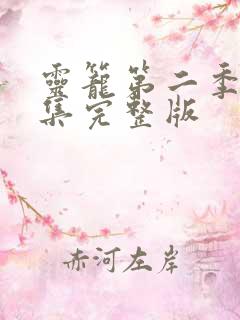 靈籠第二季
集完整版
赤河左岸